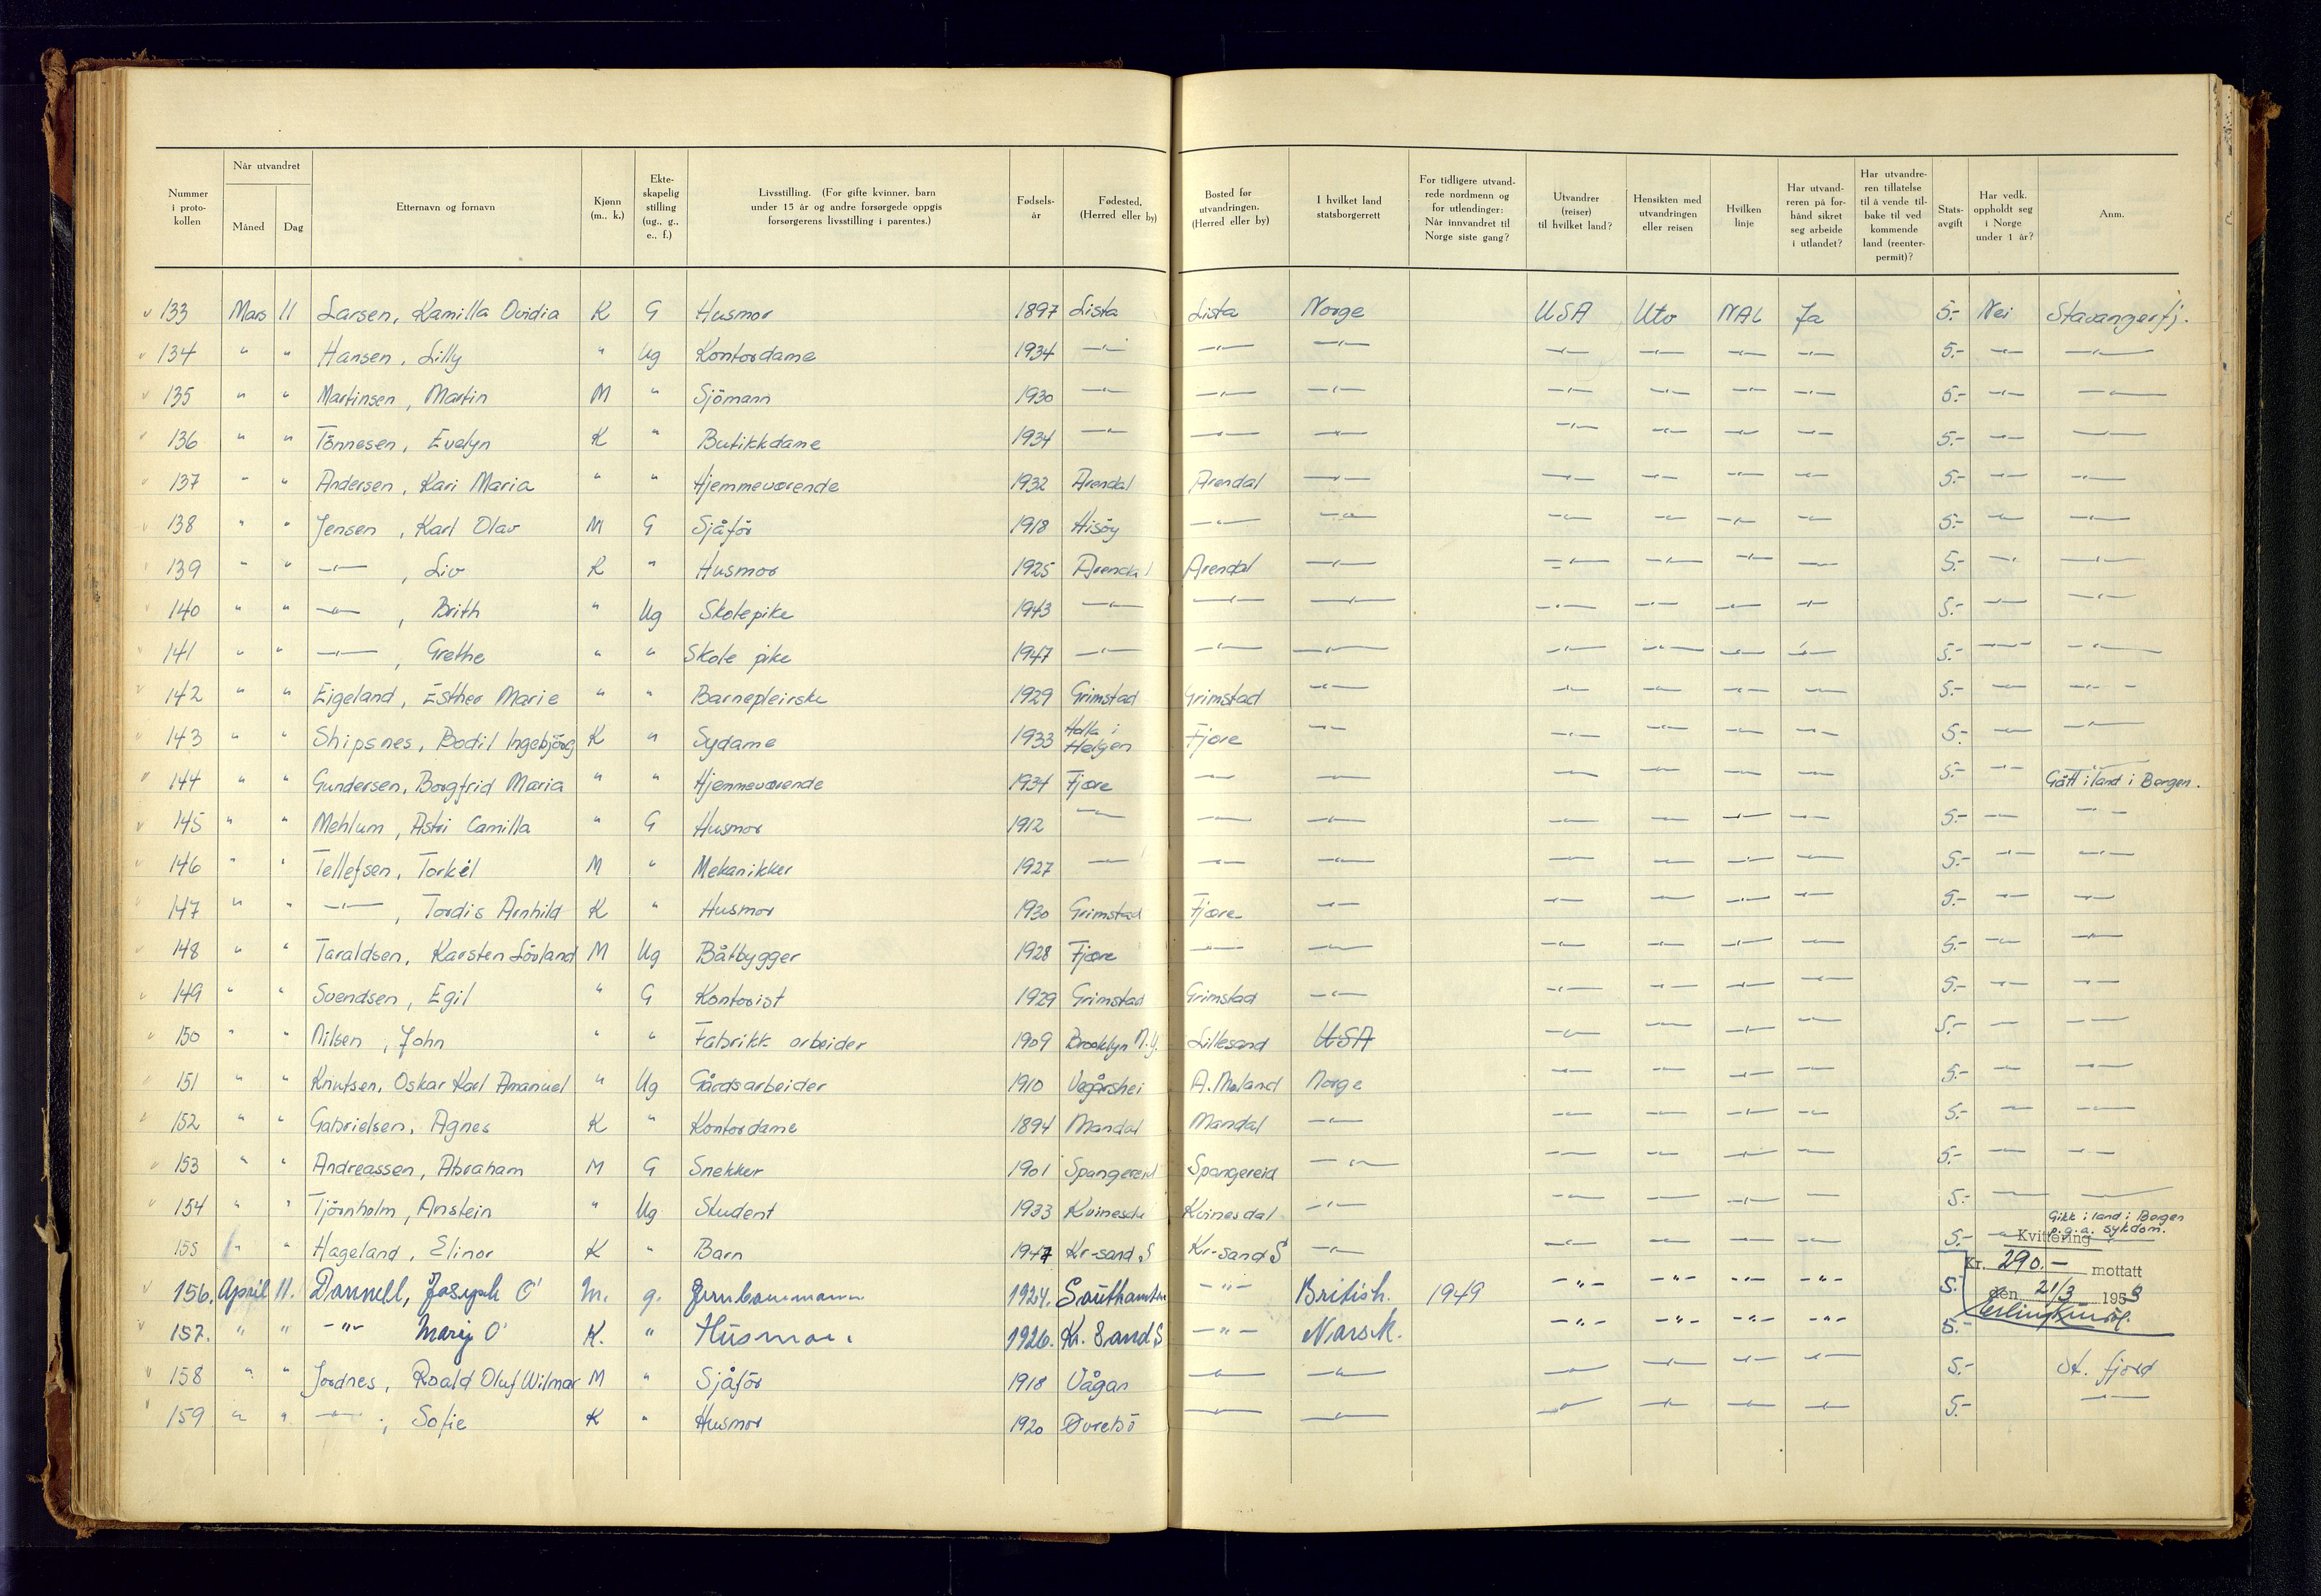 Nummer i proto- kollen | Når utvandret | Måned | Dag | Etternavn og fornavn | Kjønn (m., k.) | Ekte- skapelig stilling (ug., g., e., f.) | Livsstilling. (For gifte kvinner, barn under 15 år og andre forsørgede oppgis forsørgerens livsstilling i parentes.) | Fødsels- år | Fødested. (Herred eller by) | Bosted før utvandringen. (Herred eller by) | I hvilket land statsborgerrett | For tidligere utvand- rede nordmenn og for utlendinger: Når innvandret til Norge siste gang? | Utvandrer (reiser) til hvilket land? | Hensikten med utvandringen eller reisen | Hvilken linje | Har utvand- reren på for- hånd sikret seg arbeide i utlandet? | Har utvandre- ren tillatelse til å vende til- bake til ved kommende land (reenter- permit)? | Stats- avgift | Har vedk. oppholdt seg i Norge under 1 år? | Anm.
133 Mars 11 Larsen, Kamilla Ovidia K G Husmor 1897 Lista Lista Norge USA Utv NAL Ja 5.- Nei Stavangerfj.
134 " " Hansen, Lilly " Ug Kontordame 1934 -"- -"- -"- -"- -"- -"- -"- 5.- -"- -"-
135 " " Martinsen, Martin M " Sjömann 1930 -"- -"- -"- -"- -"- -"- -"- 5.- -"- -"-
136 " " Tönnesen, Evelyn K " Butikkdame 1934 -"- -"- -"- -"- -"- -"- -"- 5.- -"- -"-
137 " " Andersen, Kari Maria " " Hjemmeværende 1932 Arendal Arendal -"- -"- -"- -"- -"- 5.- -"- -"-
138 " " Jensen, Karl Olav M G Sjåför 1918 Hisöy -"- -"- -"- -"- -"- -"- 5.- -"- -"-
139 " " -"-, Liv K " Husmor 1925 Arendal Arendal -"- -"- -"- -"- -"- 5.- -"- -"-
140 " " -"-, Brith " Ug Skolepike 1943 -"- -"- -"- -"- -"- -"- -"- 5.- -"- -"-
141 " " -"-, Grethe " " Skole pike 1947 -"- -"- -"- -"- -"- -"- -"- 5.- -"- -"-
142 " " Eigeland, Esther Marie " " Barnepleirske 1929 Grimstad Grimstad -"- -"- -"- -"- -"- 5.- -"- -"-
143 " " Shipsnes, Bodil Ingebjörg K " Sydame 1933 Holla i Helgen Fjære -"- -"- -"- -"- -"- 5.- -"- -"-
144 " " Gundersen, Borgfrid Maria " " Hjemmeværende 1934 Fjære -"- -"- -"- -"- -"- -"- 5.- -"- Gått i land i Bergen.
145 " " Mehlum, Astri Camilla " G Husmor 1912 -"- -"- -"- -"- -"- -"- -"- 5.- -"- -"-
146 " " Tellefsen, Torkel M " Mekanikker 1927 -"- -"- -"- -"- -"- -"- -"- 5.- -"- -"-
147 " " -"-, Tordis Arnhild K " Husmor 1930 Grimstad Fjære -"- -"- -"- -"- -"- 5.- -"- -"-
148 " " Taraldsen, Karsten Lövland M Ug Båtbygger 1928 Fjære -"- -"- -"- -"- -"- -"- 5.- -"- -"-
149 " " Svendsen, Egil " G Kontorist 1929 Grimstad Grimstad -"- -"- -"- -"- -"- 5.- -"- -"-
150 " " Nilsen, John " " Fabrikk arbeider 1909 Brooklyn N.y. Lillesand USA -"- -"- -"- -"- 5.- -"- -"-
151 " " Knutsen, Oskar Karl Amanuel " Ug Gårdsarbeider 1910 Vegårshei A. Moland Norge -"- -"- -"- -"- 5.- -"- -"-
152 " " Gabrielsen, Agnes K " Kontordame 1894 Mandal Mandal -"- -"- -"- -"- -"- 5.- -"- -"-
153 " " Andreassen, Abraham M G Snekker 1901 Spangereid Spangereid -"- -"- -"- -"- -"- 5.- -"- -"-
154 " " Tjörnholm, Anstein " Ug Student 1933 Kvinesdal Kvinesdal -"- -"- -"- -"- -"- 5.- -"- -"-
155 " " Hageland, Elinor K " Barn 1947 Kr-sand S Kr-sand S -"- -"- -"- -"- -"- 5.- -"- Gikk i land i Bergen p.g.a. sykdom.
Kvittering
Kr. 290.- mottatt
den 21/3 1953
156. April 11. Donnell, Joseph O' M. g. Jernbanemann 1924. Southamton -"- British. 1949 -"- -"- -"- -"- 5.-
157. " " -"- Mary O' K. " Husmor. 1926. Kr. Sand S -"- Norsk. -"- -"- -"- -"- 5.-
158 " " Jordnes, Roald Oluf Wilmar M " Sjåför 1918 Vågan -"- -"- -"- -"- -"- -"- 5.- St. fjord
159 " " -"-, Sofie K " Husmor 1920 Övrebö -"- -"- -"- -"- -"- -"- 5.- -"-